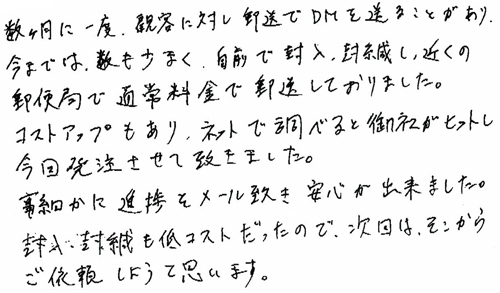 数ヶ月に一度、観客に対し郵送でDMを送ることがあり、
今までは、数も少なく、自前で封入、封緘し、近くの
郵便局で通常料金で郵送しておりました。
コストアップもあり、ネットで調べると御社がヒットし
今回発注させて致きました。
事細かに進捗をメール致き安心が出来ました。
封入、封緘も低コストだったので、次回は、そこから
ご依頼しようて思います。